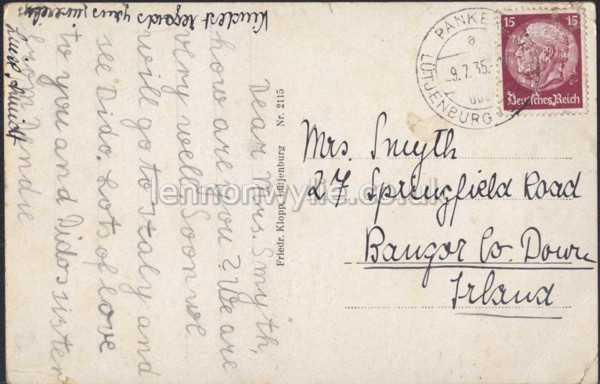 Dear Mrs. Smyth,
how are you? We are
very well. Soon we
will go to Italy and
see Dido. Lots of love
to you and Didos sister
from
Kindest regards yours sincerely
Friedr. Klopp, Lütjenburg Nr. 2115
PANKER
a
9.7.35.
LÜTJENBURG
15 15
Deutsches Reich
Mrs. Smyth
27 Springfield Road
Bangor Co. Down
Irland
lennonwylie.co.uk